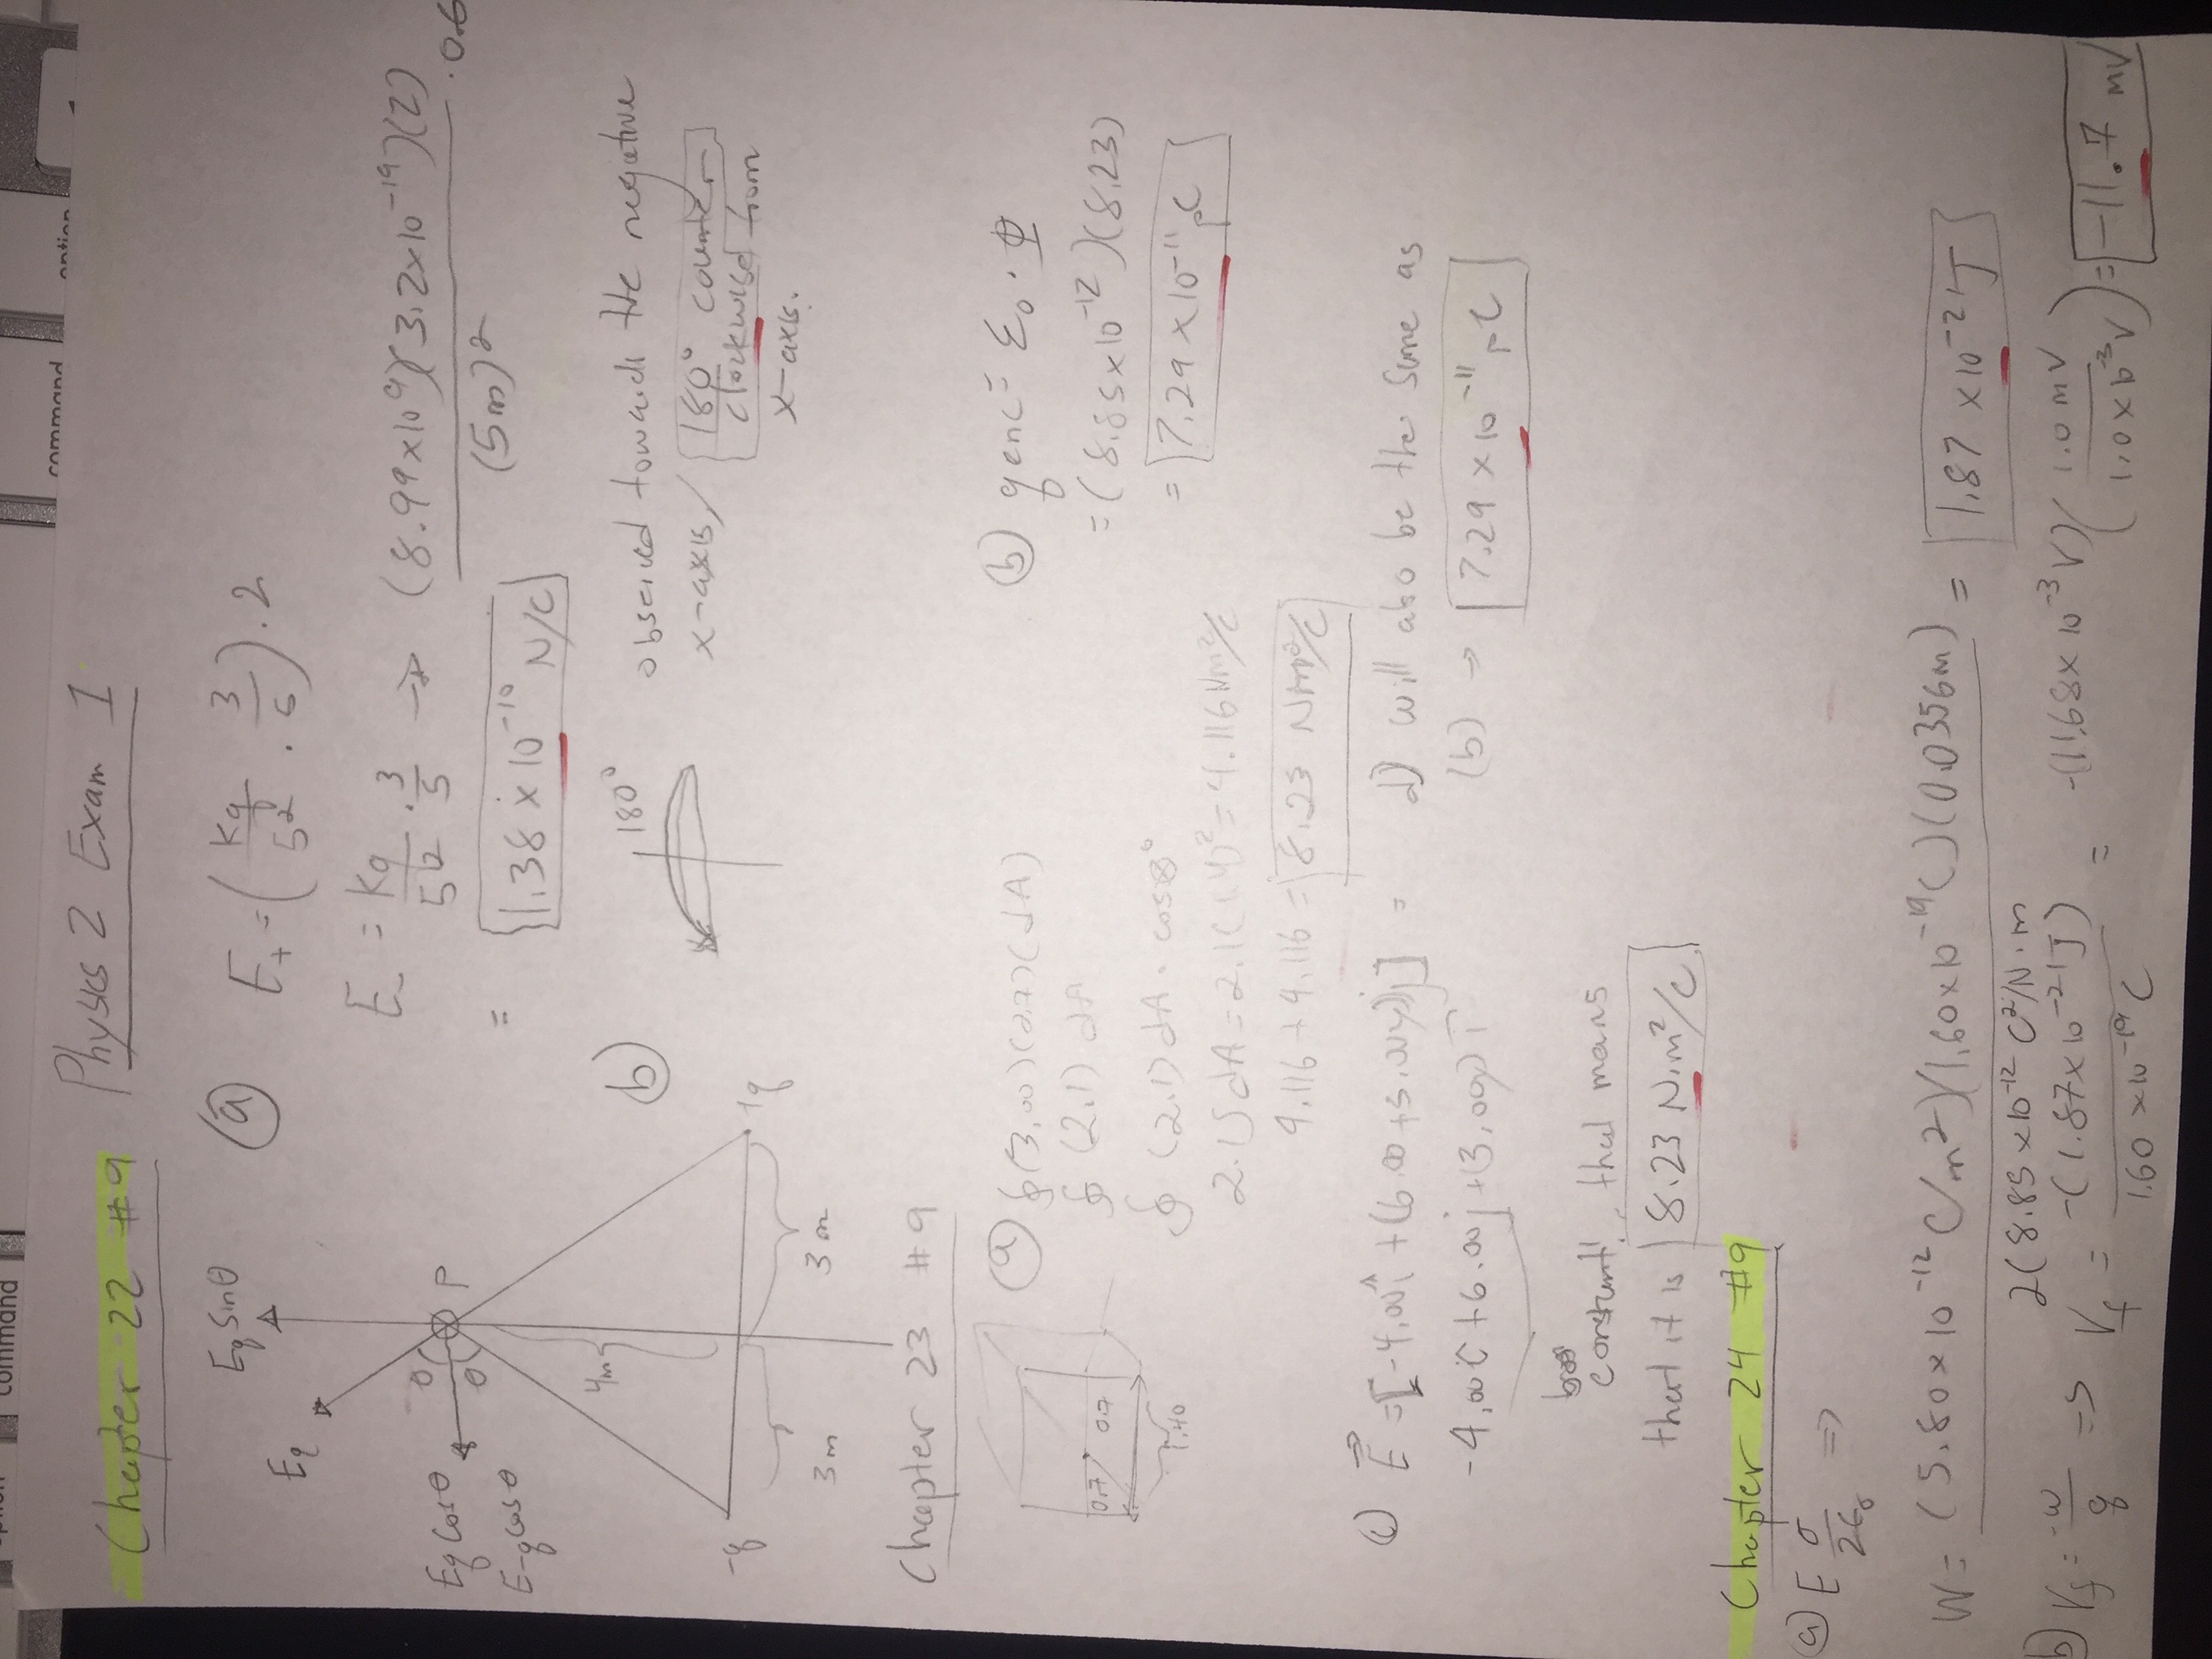 option command command option
Physics 2 Exam 1
Chapter 22 #9
Eq Sinθ
Eq
θ
Eq cosθ
θ
P
E-q cosθ
4m
-q
+q
3m 3m
(a) E+ = (Kq/5² · 3/5) · 2
E- = Kq/5² · 3/5 → (8.99x10⁹)(3.2x10⁻¹⁹)(2)/(5m)² · 0.6
= 1.38 x 10⁻¹⁰ N/C
(b) 180° observed towards the negative
x-axis / 180° counter
clockwise from
x-axis.
Chapter 23 #9
0.7 0.7
1.40
(a) ∮(3.00)(0.7)(dA)
∮ (2.1) dA
∮ (2.1) dA · cos
2.1∫dA = 2.1(1.4)² = 4.116 Nm²/C
4.116 + 4.116 = 8.23 Nm²/C
(b) qenc = ε₀ · Φ
= (8.85x10⁻¹²)(8.23)
= 7.29 x 10⁻¹¹ pC
c) E⃗ = [-4.00î + (6.00 + 3.00y)j] =
-4.00i + 6.00j + (3.00y)
constant! that means
that it is 8.23 N.m²/C
d) will also be the same as
(b) → 7.29 x 10⁻¹¹ pC
Chapter 24 #9
(a) E σ/2ε₀ ⇒
W = (5.80x10⁻¹² C/m²)(1.60x10⁻¹⁹C)(0.0356m)/2(8.85x10⁻¹² C²/N.m = 1.87 x10⁻²¹J
b) Vf = -w/q ⇒ Vf = -(1.87x10⁻²¹J)/1.60 x10⁻¹⁹ C = -(11.68x 10⁻³V)(1.0 mV/1.0x10⁻³V) = -11.7 mV